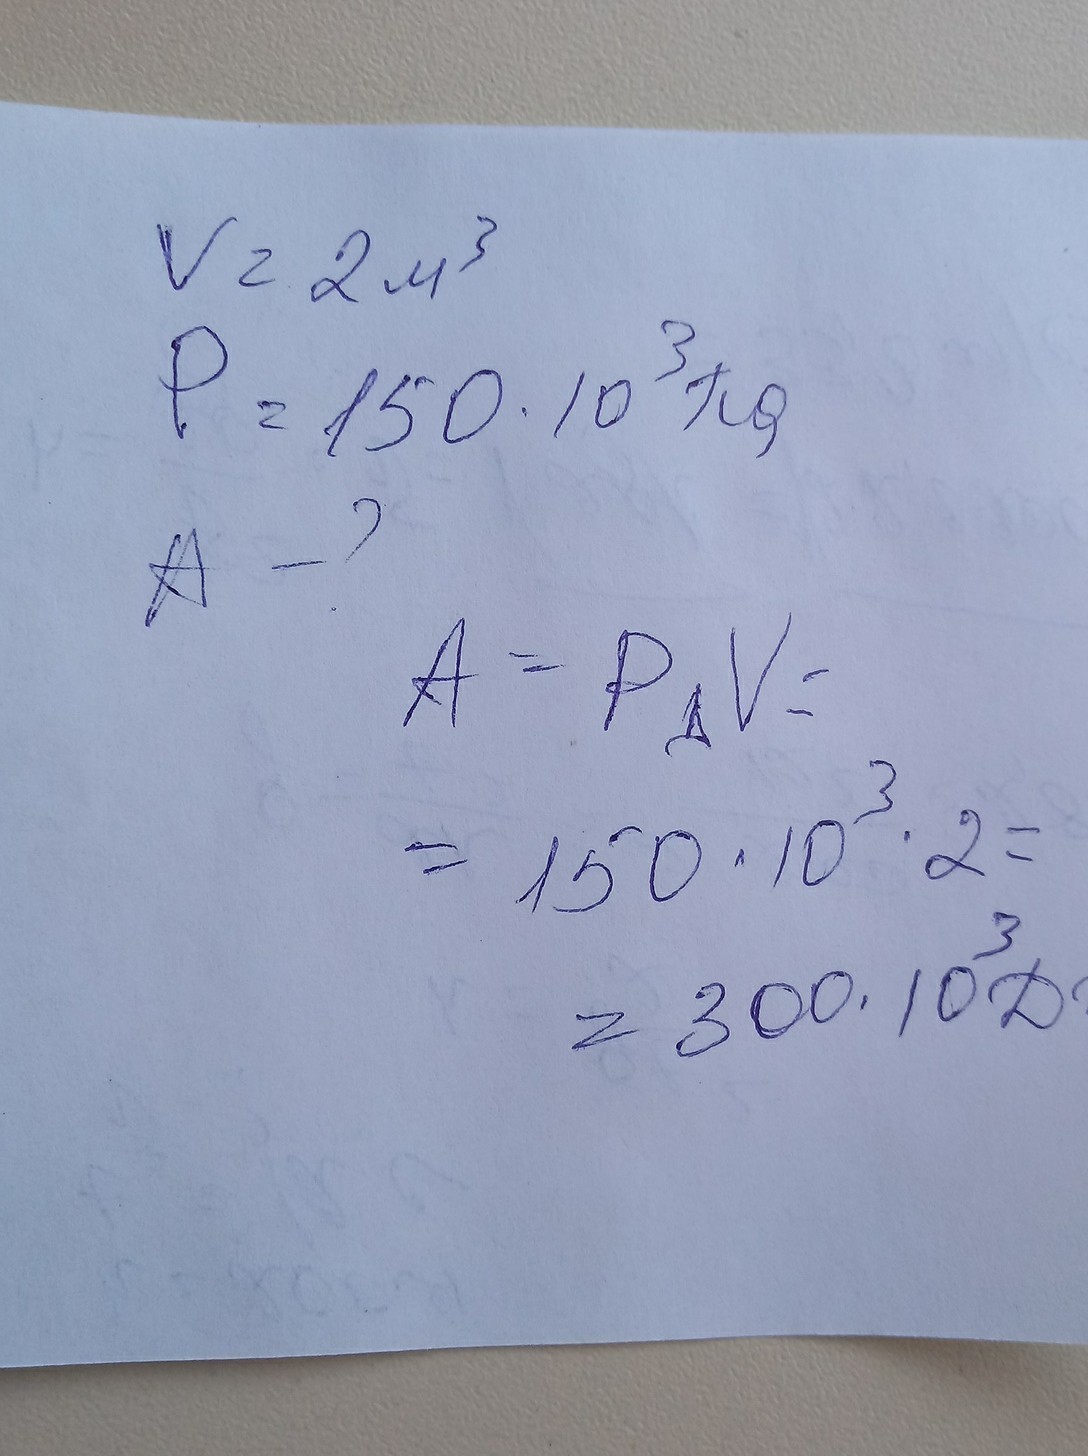 V = 2 м³
P = 150 · 10³ Па
A – ?
A = PΔV =
= 150 · 10³ · 2 =
= 300 · 10³ Д